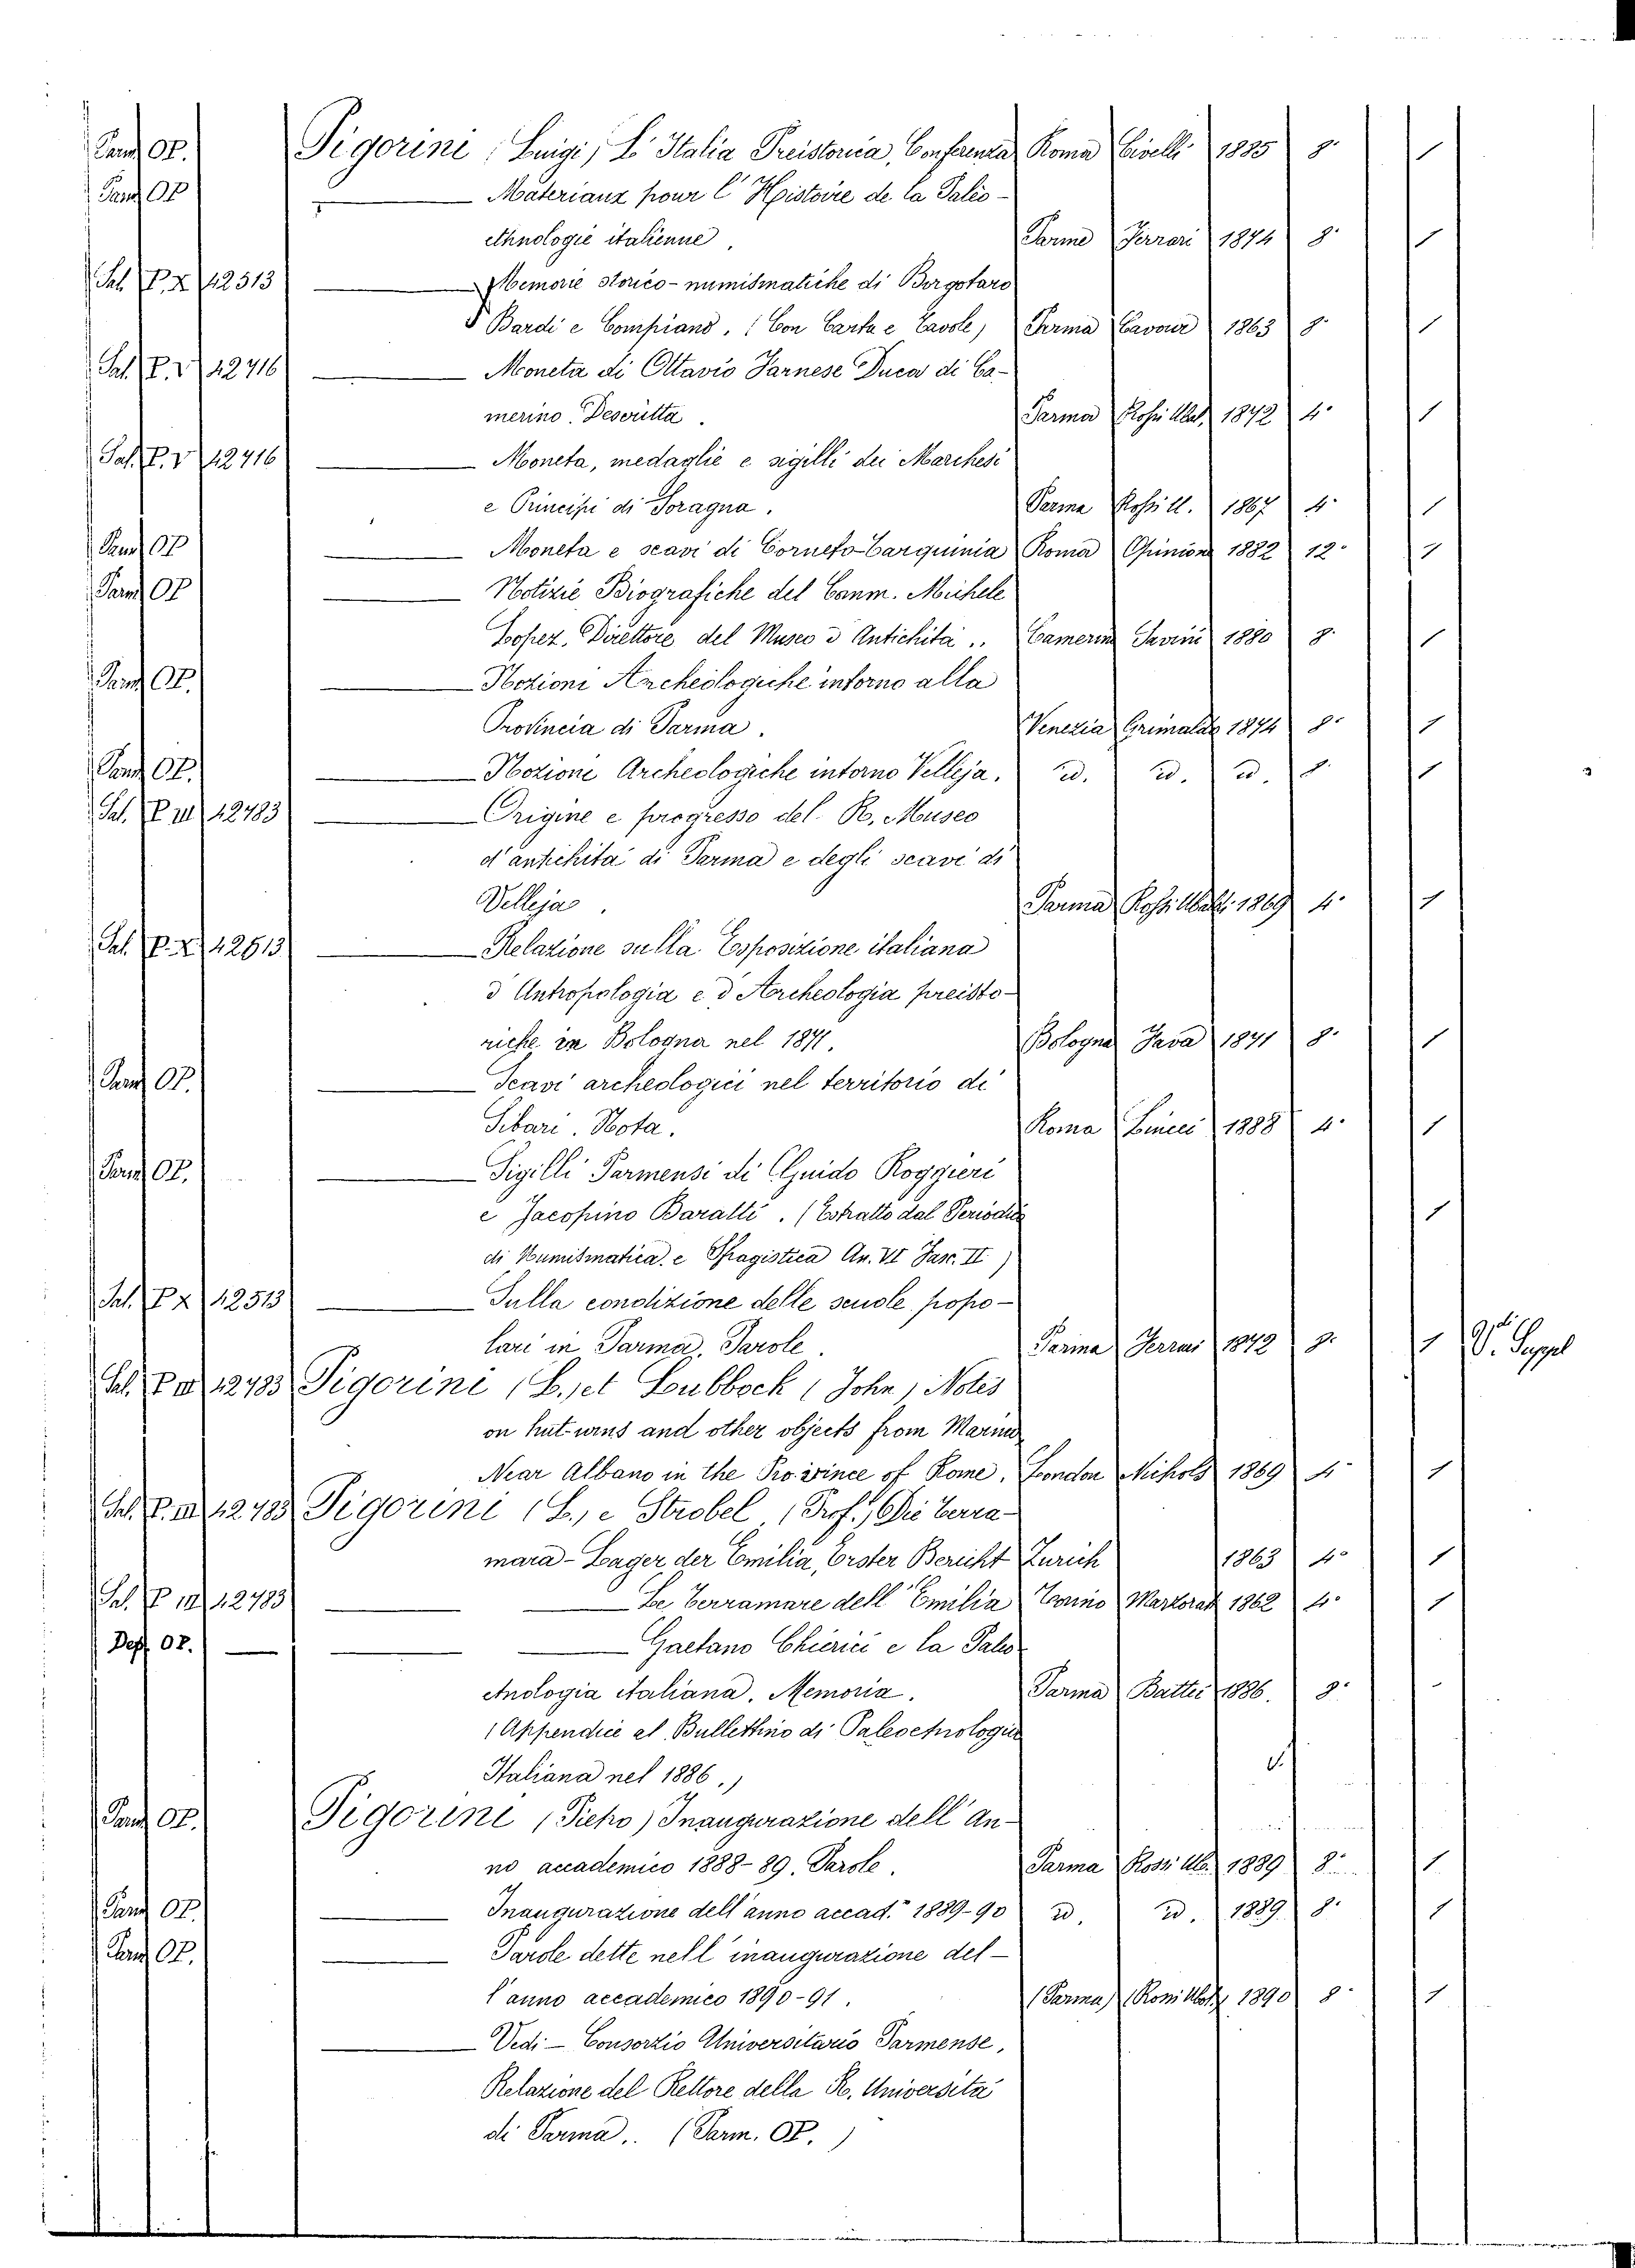 Parm. OP. Pigorini (Luigi) L'Italia Preistorica, Conferenza Roma Civelli 1885 8º 1
Parm. OP ——— Materiaux pour l'Histoire de la Paléo-
ethnologie italienne. Parme Ferrari 1874 8º 1
Sal. P. X 12513 ——— Memorie storico-numismatiche di Borgotaro
Bardi e Compiano. (Con Carta e Tavole) Parma Cavour 1863 8º 1
Sal. P. V 12716 ——— Moneta di Ottavio Farnese Duca di Ca-
merino. Descritta. Parma Rossi Ubal. 1872 4º 1
Sal. P. V 12716 ——— Moneta, medaglie e sigilli dei Marchesi
e Principi di Soragna. Parma Rossi U. 1867 4º 1
Parm. OP ——— Moneta e scavi di Corneto Tarquinia Roma Opinione 1882 12º 1
Parm. OP ——— Notizie Biografiche del Comm. Michele
Lopez, Direttore del Museo d'Antichità.. Camerino Savini 1880 8º 1
Parm. OP. ——— Nozioni Archeologiche intorno alla
Provincia di Parma. Venezia Grimaldo 1874 8º 1
Parm. OP. ——— Nozione Archeologiche intorno Velleja. id. id. id. 8º 1
Sal. P III 12783 ——— Origine e progresso del R. Museo
d'antichità di Parma e degli scavi di
Velleja. Parma Rossi Ubaldi 1869 4º 1
Sal. P. X 12513 ——— Relazione sulla Esposizione italiana
d'Antropologia e d'Archeologia preisto-
riche in Bologna nel 1871. Bologna Fava 1871 8º 1
Parm. OP. ——— Scavi archeologici nel territorio di
Sibari. Nota. Roma Lincei 1888 4º 1
Parm. OP. ——— Sigilli Parmensi di Guido Roggieri
e Jacopino Baratti. (Estratto dal Periodico
di Numismatica e Sfragistica An. VI Fasc. II) 1
Sal. P X 12513 ——— Sulla condizione delle scuole popo-
lari in Parma, Parole. Parma Ferrari 1872 8º 1 Vedi Suppl
Sal. P III 12783 Pigorini (L.) et Lubbock (John) Notes
on hut-urns and other objects from Marino
Near Albano in the Province of Rome. London Nichols 1869 4º 1
Sal. P. III 12783 Pigorini (L.) e Strobel (Prof.) Die Terra-
mara-Lager der Emilia, Erster Bericht Zurich 1863 4º 1
Sal. P III 12783 ——— Le Terramare dell'Emilia Torino Martorat 1862 4º 1
Dep. OP. ——— Gaetano Chierici e la Paleo
etnologia italiana. Memoria. Parma Battei 1886. 8º
(Appendice al Bullettino di Paleoetnologia
Italiana nel 1886.)
Parm. OP. Pigorini (Pietro) Inaugurazione dell'an-
no accademico 1888-89. Parole. Parma Rossi Ub. 1889 8º 1
Parm. OP. ——— Inaugurazione dell'anno accad.º 1889-90 id. id. 1889 8º 1
Parm. OP. ——— Parole dette nell'inaugurazione del-
l'anno accademico 1890-91. (Parma) (Rossi Ub.) 1890 8º 1
——— Vedi — Consorzio Universitario Parmense,
Relazione del Rettore della R. Università
di Parma.. (Parm. OP.)